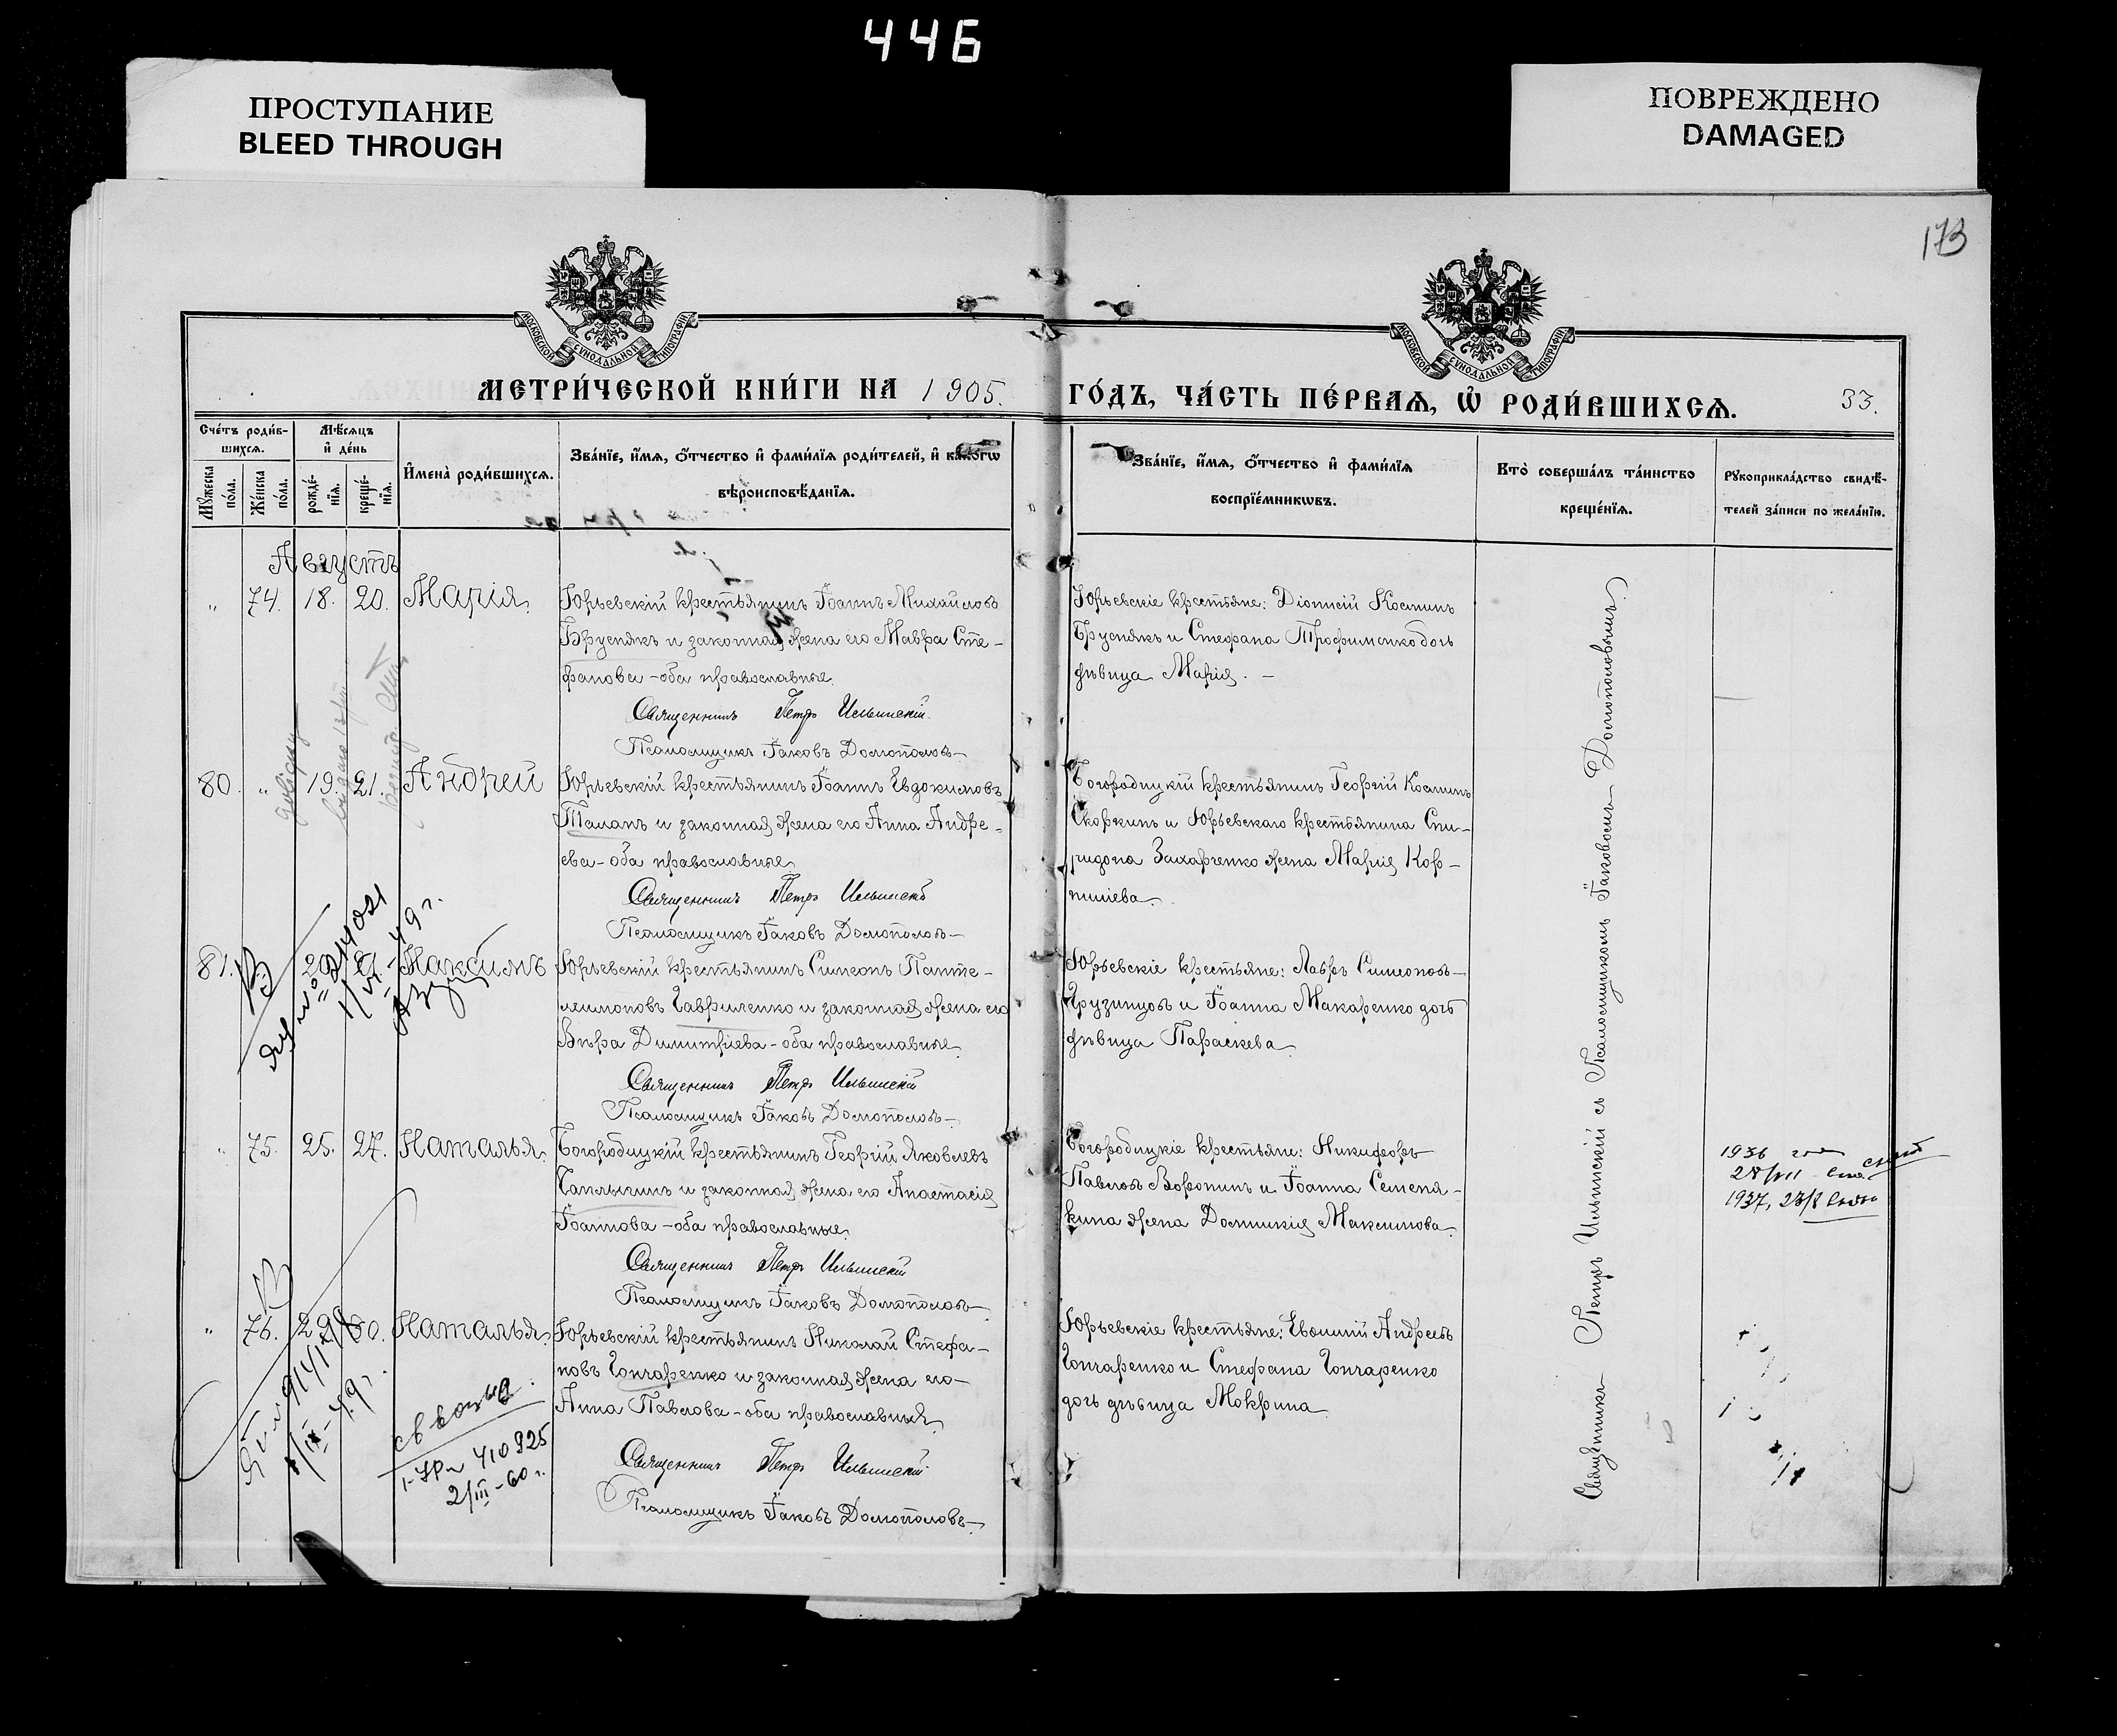 446
ПРОСТУПАНИЕ
BLEED THROUGH
ПОВРЕЖДЕНО
DAMAGED
173
МОСКОВСКОЙ СУНОДАЛЬНОЙ ТИПОГРАФІИ
МОСКОВСКОЙ СУНОДАЛЬНОЙ ТИПОГРАФІИ
МЕТРИ́ЧЕСКОЙ КНИ́ГИ НА 1905.
ГО́ДЪ, ЧА́СТЬ ПЕ́РВАѦ, Ѡ҆ РОДИ́ВШИХСѦ.
33.
Сче́тъ роди́в-
шихсѧ.
Мꙋ́жеска по́ла.
Же́нска по́ла.
Мѣ́сѧцъ
и҆ де́нь
рожде́-нїѧ.
креще́-нїѧ.
И҆мена̀ роди́вшихсѧ.
Зва́нїе, и҆́мѧ, ѻ҆́тчество и҆ фами́лїѧ роди́телей, и҆ како́гѡ
вѣроисповѣ́данїѧ.
Зва́нїе, и҆́мѧ, ѻ҆́тчество и҆ фами́лїѧ
воспрїе́мникѡвъ.
Кто̀ соверша́лъ та́инство
креще́нїѧ.
Рꙋкоприкла́дство свидѣ́-
телей за́писи по жела́нїю.
Августъ
" 74. 18. 20. Марія.
Юрьевскій крестьянинъ Іоаннъ Михайловъ
Бруснякъ и законная жена его Мавра Сте-
фанова - оба православные.
Священникъ Петръ Ильинскій
Псаломщикъ Іаковъ Домополовъ
Юрьевскіе крестьяне: Діонисій Косминъ
Бруснякъ и Стефана Трофименко дочь
дѣвица Марія. -
80. " 19. 21. Андрей
Юрьевскій крестьянинъ Іоаннъ Евдокимовъ
Таланъ и законная жена его Анна Андре-
ева - оба православные.
Священникъ Петръ Ильинскій
Псаломщикъ Іаковъ Домополовъ
Богородицкій крестьянинъ Георгій Косминъ
Скоркинъ и Юрьевскаго крестьянина Спи-
ридона Захарченко жена Марія Кор-
ниліева.
81. 20 21. Максимъ
Юрьевскій крестьянинъ Симеонъ Панте-
леимоновъ Гавриленко и законная жена его
Вѣра Димитріева - оба православные.
Священникъ Петръ Ильинскій
Псаломщикъ Іаковъ Домополовъ
Юрьевскіе крестьяне: Лавръ Симеоновъ
Грузинцовъ и Іоанна Макаренко дочь
дѣвица Параскева.
" 75. 25. 27. Наталья.
Богородицкій крестьянинъ Георгій Яковлевъ
Чаплыгинъ и законная жена его Анастасія
Іоаннова - оба православные.
Священникъ Петръ Ильинскій
Псаломщикъ Іаковъ Домополовъ
Богородицкіе крестьяне: Никифоръ
Павловъ Воронинъ и Іоанна Семеня-
кина жена Домникія Максимова.
1936
1937, 23/8
" 76. 29 30. Наталья.
Юрьевскій крестьянинъ Николай Стефа-
новъ Гончаренко и законная жена его
Анна Павлова - оба православныя.
Священникъ Петръ Ильинскій
Псаломщикъ Іаковъ Домополовъ
410925
2/III-60 г.
Юрьевскіе крестьяне: Евфимій Андреевъ
Гончаренко и Стефана Гончаренко
дочь дѣвица Мокрина.
Священникъ Петръ Ильинскій съ Псаломщикомъ Іаковомъ Домополовымъ.